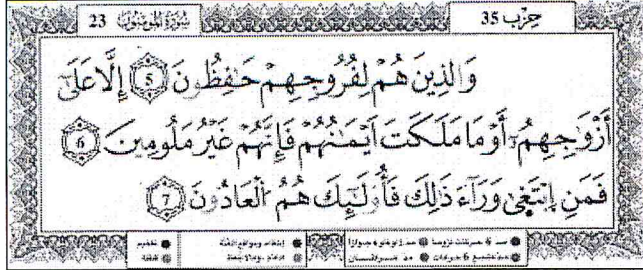 سُورَةُ المُؤْمِنُونَ 23
حِزْب 35
وَالذِينَ هُمْ لِفُرُوجِهِمْ حَٰفِظُونَ 5 إِلَّا عَلَىٰٓ
أَزْوَٰجِهِمُۥٓ أَوْ مَا مَلَكَتَ اَيْمَٰنُهُمْ فَإِنَّهُمْ غَيْرُ مَلُومِينَ 6
فَمَنِ اِبْتَغ۪ىٰ وَرَآءَ ذَٰلِكَ فَأُوْلَٰٓئِكَ هُمُ اُلْعَادُونَ 7
تفخيم
قلقلة